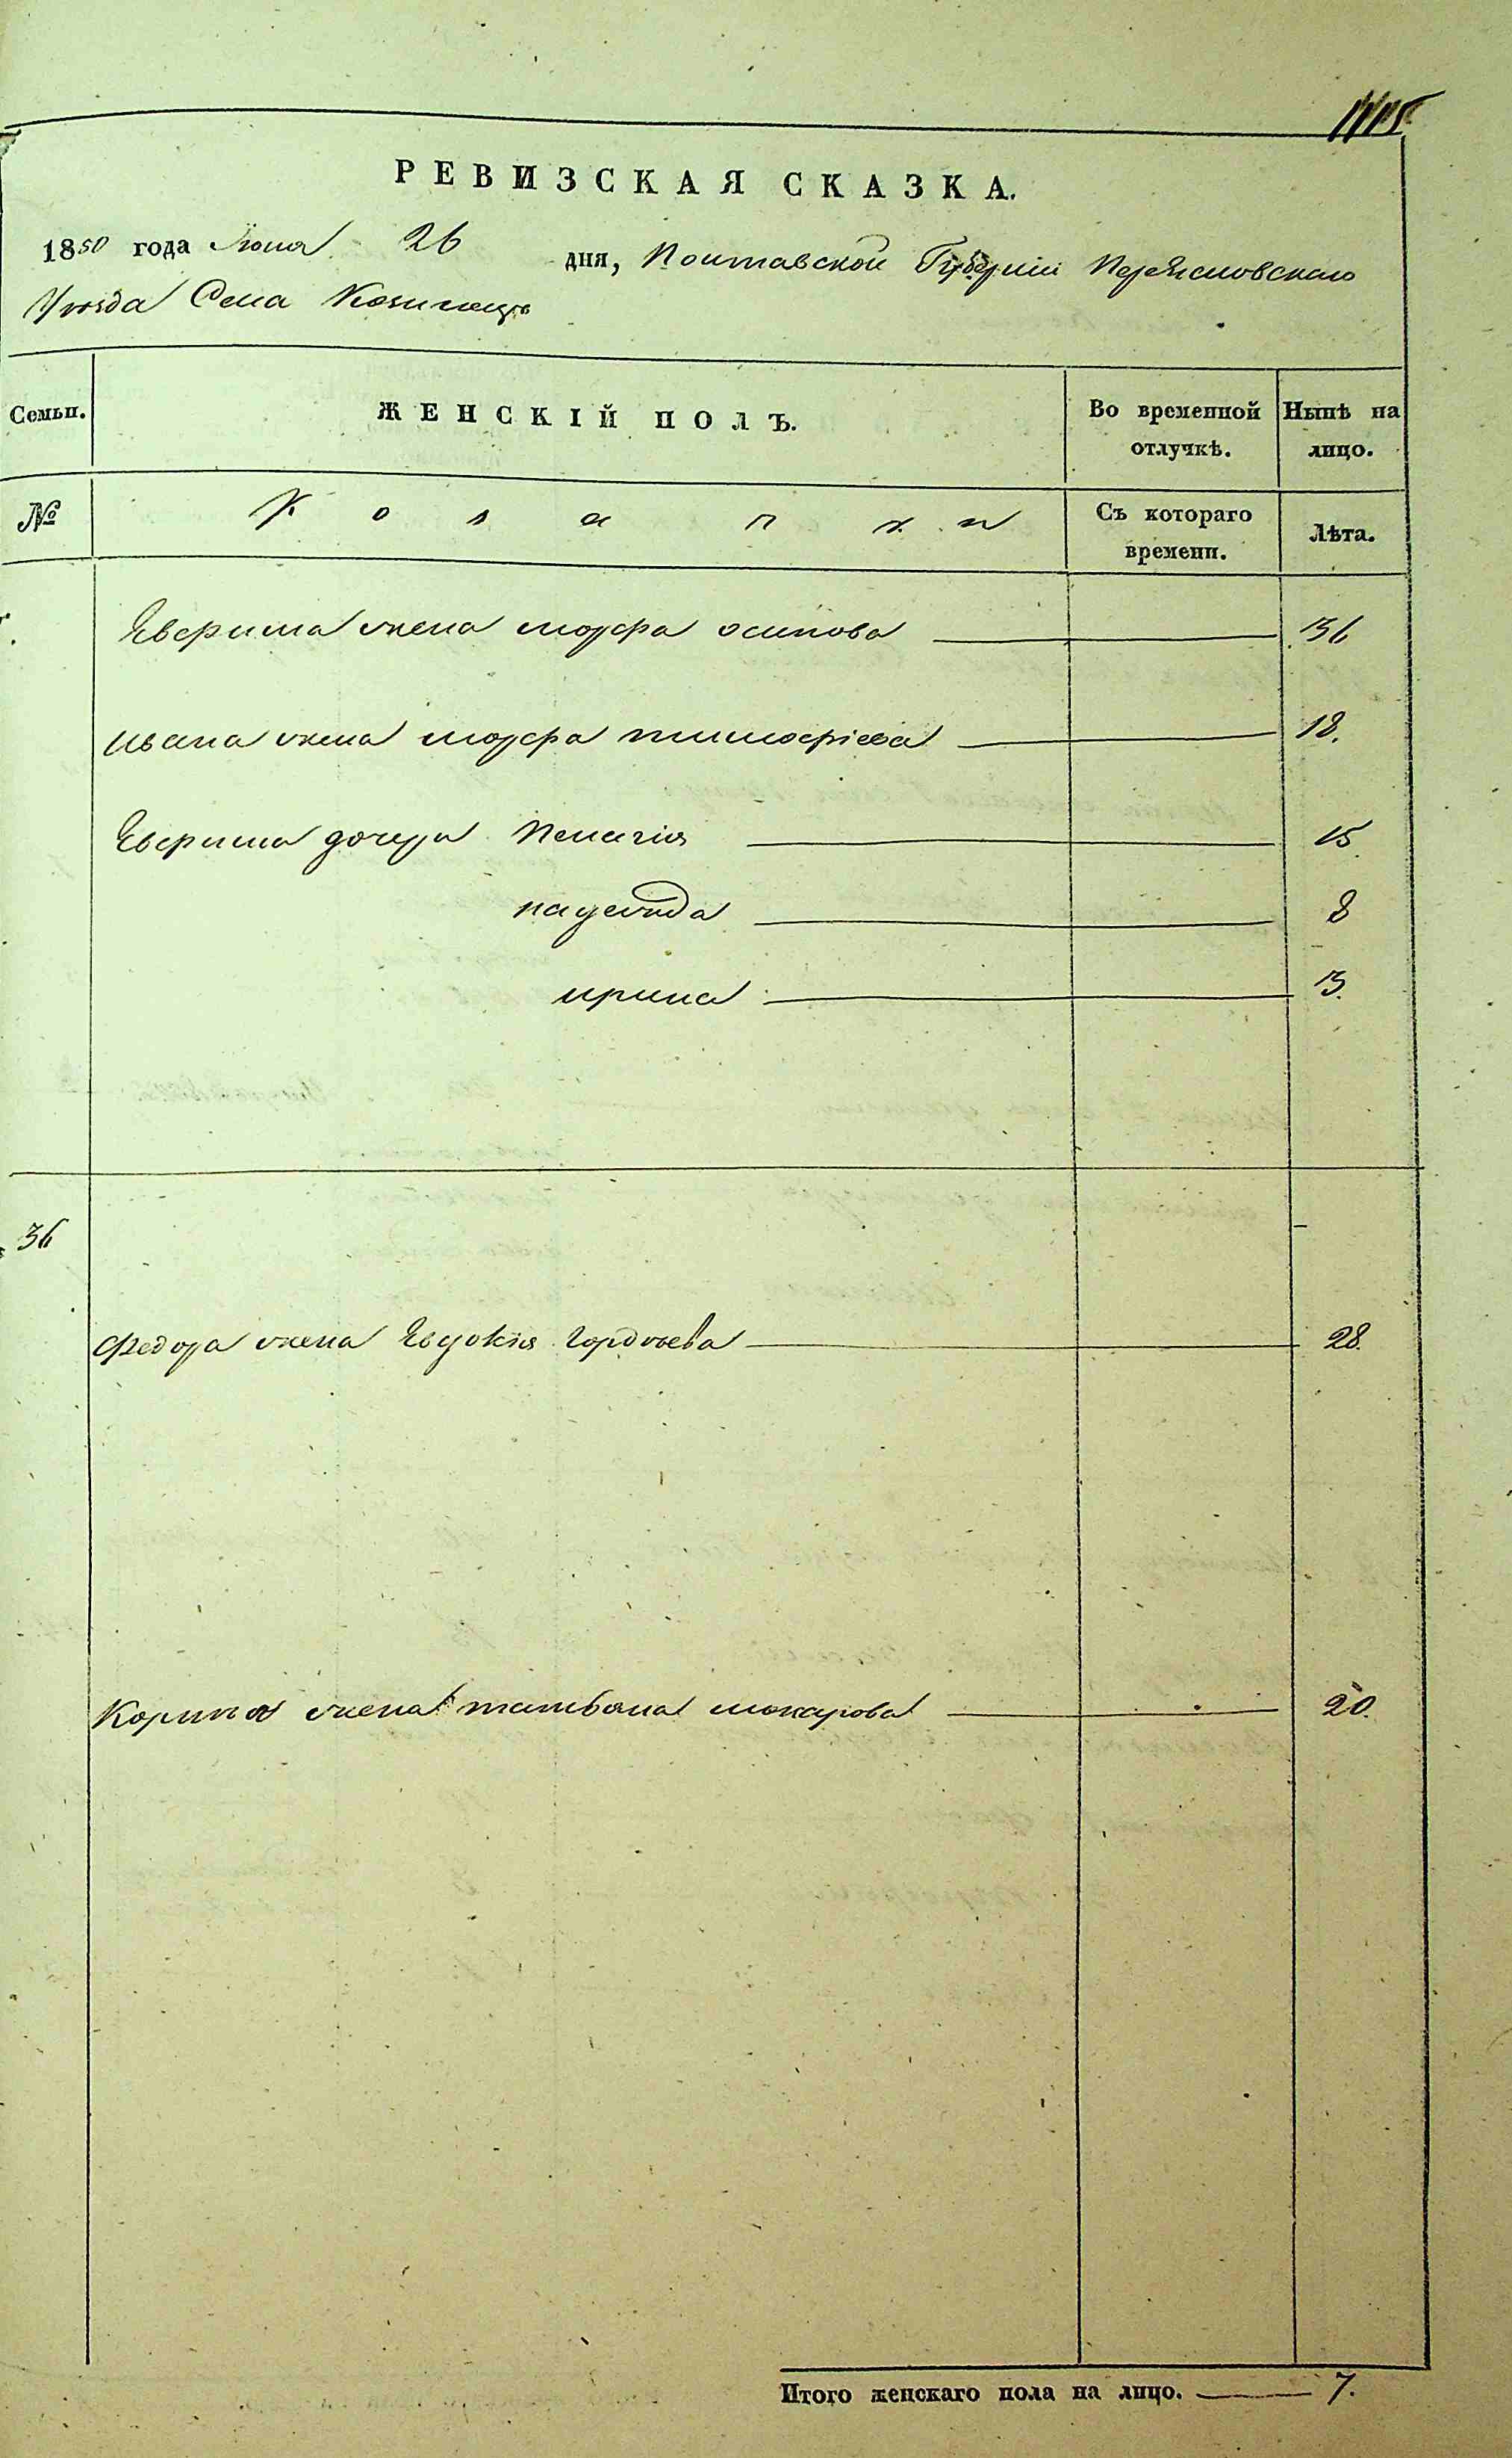 РЕВИЗСКАЯ СКАЗКА.
1850 года Июня 26 дня, Полтавской Губернiи Переясловскаго
Уѣзда Села Козинецъ
Семьи. ЖЕНСКIЙ ПОЛЪ. Во временной отлучкѣ. Нынѣ на лицо.
№ Козачки Съ котораго времени. Лѣта.
жена марфа осипова 36
ивана жена марфа тимофiева 18.
дочери Пелагiя 15
надежда 8
ирина 3.
36
Федора жена Евдокiя Гордѣева 28.
жена татьяна макарова 20.
Итого женскаго пола на лицо. 7.